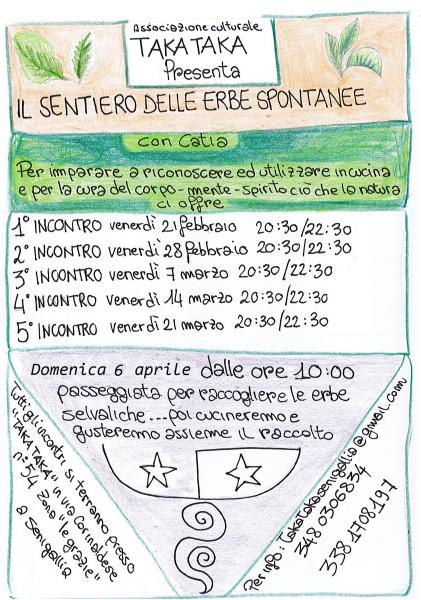 Associazione culturale
TAKATAKA
Presenta
IL SENTIERO DELLE ERBE SPONTANEE
con Catia
Per imparare a riconoscere ed utilizzare in cucina
e per la cura del corpo-mente-spirito ciò che la natura
ci offre
1° INCONTRO venerdì 21 febbraio 20:30/22:30
2° INCONTRO venerdì 28 febbraio 20:30/22:30
3° INCONTRO venerdì 7 marzo 20:30/22:30
4° INCONTRO venerdì 14 marzo 20:30/22:30
5° INCONTRO venerdì 21 marzo 20:30/22:30
Domenica 6 aprile dalle ore 10:00
passeggiata per raccogliere le erbe
selvatiche...poi cucineremo e
gusteremo assieme il raccolto
Tutti gli incontri si terranno presso
"TAKATAKA" in via Corinaldese
n° 54 zona "le grazie"
a Senigallia
Per info: takatakasenigallia@gmail.com
348 0306834
338 1708197